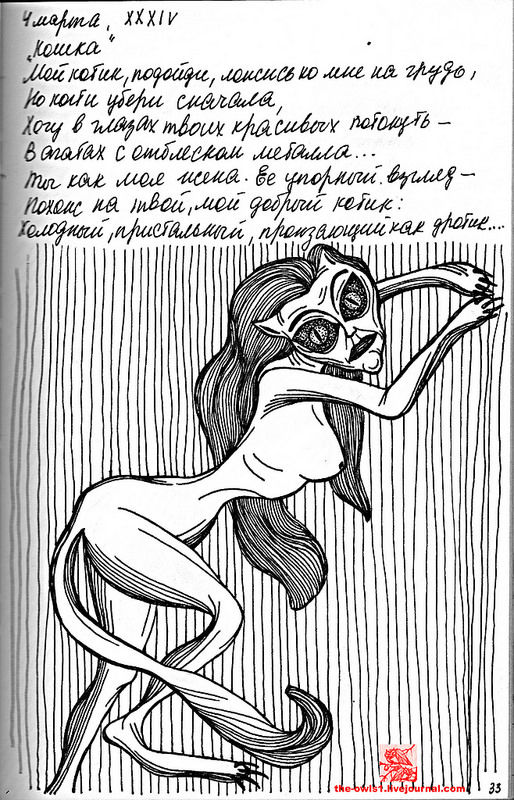 4 марта, XXXIV
„Кошка“
Мой котик, подойди, ложись ко мне на грудь,
Но когти убери сначала,
Хочу в глазах твоих красивых потонуть –
В агатах с отблеском металла...
Ты как моя жена. Её упорный взгляд –
Похож на твой, мой добрый котик:
Холодный, пристальный, пронзающий как дротик....
the-owls7.livejournal.com
33